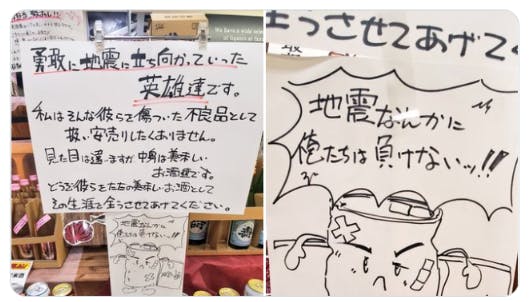 勇敢に地震に立ち向かっていった
英雄達です。
私はそんな彼らを傷ついた不良品として
扱い安売りしたくありません。
見た目は違いますが中身は美味しい
お酒達です。
どうぞ彼らをただの美味しいお酒として
その生涯を全うさせてあげてください。
地震なんかに
俺たちは負けないッ!!
全うさせてあげて
地震なんかに
俺たちは負けないッ!!